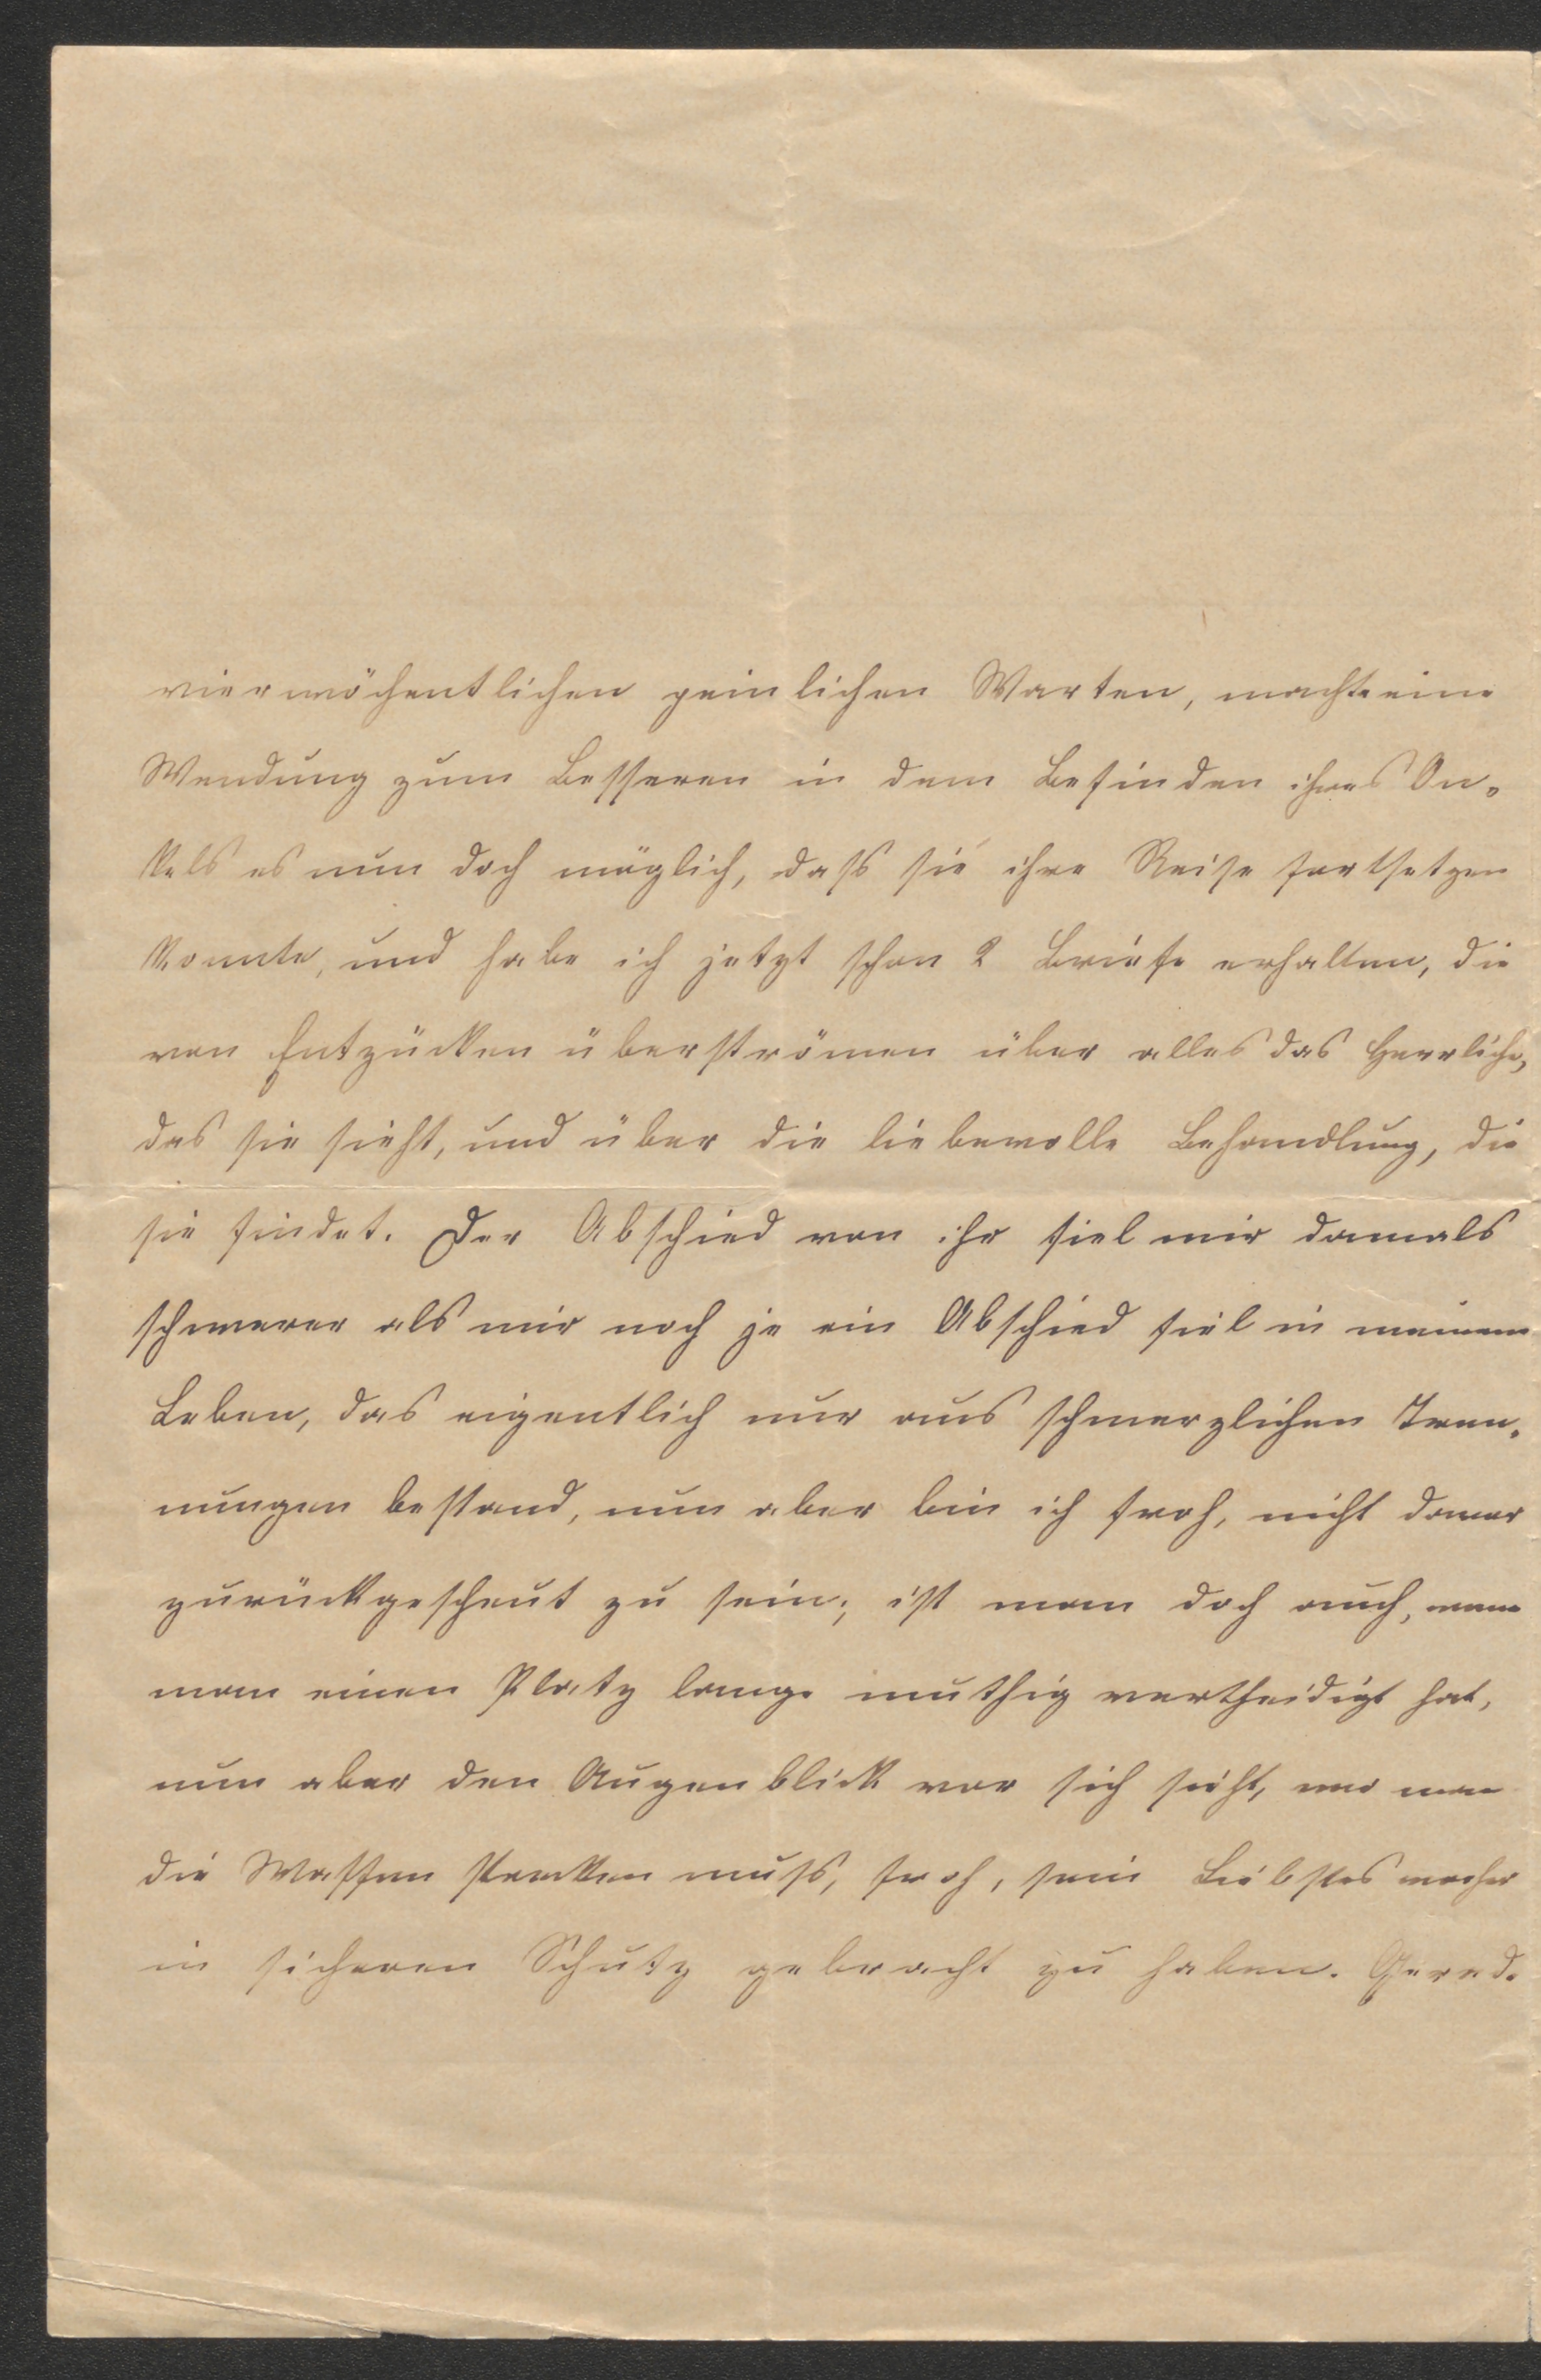 vierwöchentlichen peinlichen Warten, machte eine
Wendung zum Besseren in dem Befinden ihres On-
kels es nun doch möglich, dass sie ihre Reise fortsetzen
konnte, und habe ich jetzt schon 2 Briefe erhalten, die
von Entzücken überströmen über alles das Herrliche,
das sie sieht, und über die liebevolle Behandlung, die
sie findet. Der Abschied von ihr fiel mir damals
schwerer als mir noch je ein Abschied fiel in meinem
Leben, das eigentlich nur aus schmerzlichen Tren-
nungen bestand, nun aber bin ich froh, nicht davor
zurückgescheut zu sein; ist man doch auch, wenn
man einen Platz lange muthig vertheidigt hat,
nun aber den Augenblick vor sich sieht, wo man
die Waffen strecken muss, froh, sein Liebstes vorher
in sicheren Schutz gebracht zu haben. Gerade